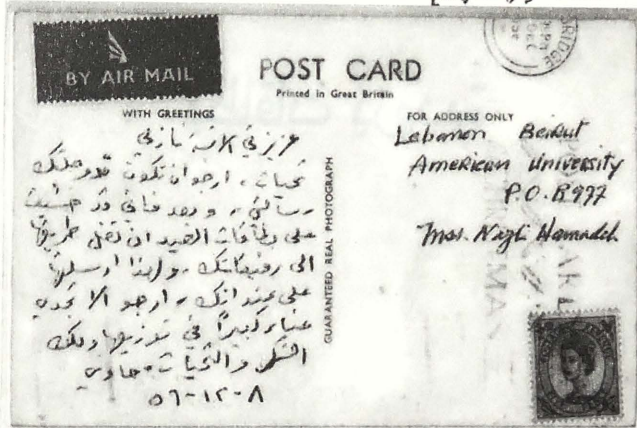 BY AIR MAIL
POST CARD
Printed in Great Britain
WITH GREETINGS
عزيزتي الآنسة نازلي
تحيات، ارجو ان تكون قد وصلتك
رسالتي، وبعد فاني قد خشيت
على بطاقات العيد ان تضل طريقها
الى رفيقاتك، ولهذا ارسلتها
على عنوانك، ارجو الا تجدي
عناء كبيرا في توزيعها ولك
الشكر والتحيات حاوي
٨-١٢-٥٦
GUARANTEED REAL PHOTOGRAPH
FOR ADDRESS ONLY
Lebanon Beirut
American University
P.O.B 977
Miss. Nazli Hamadeh
BRIDGE
DEC